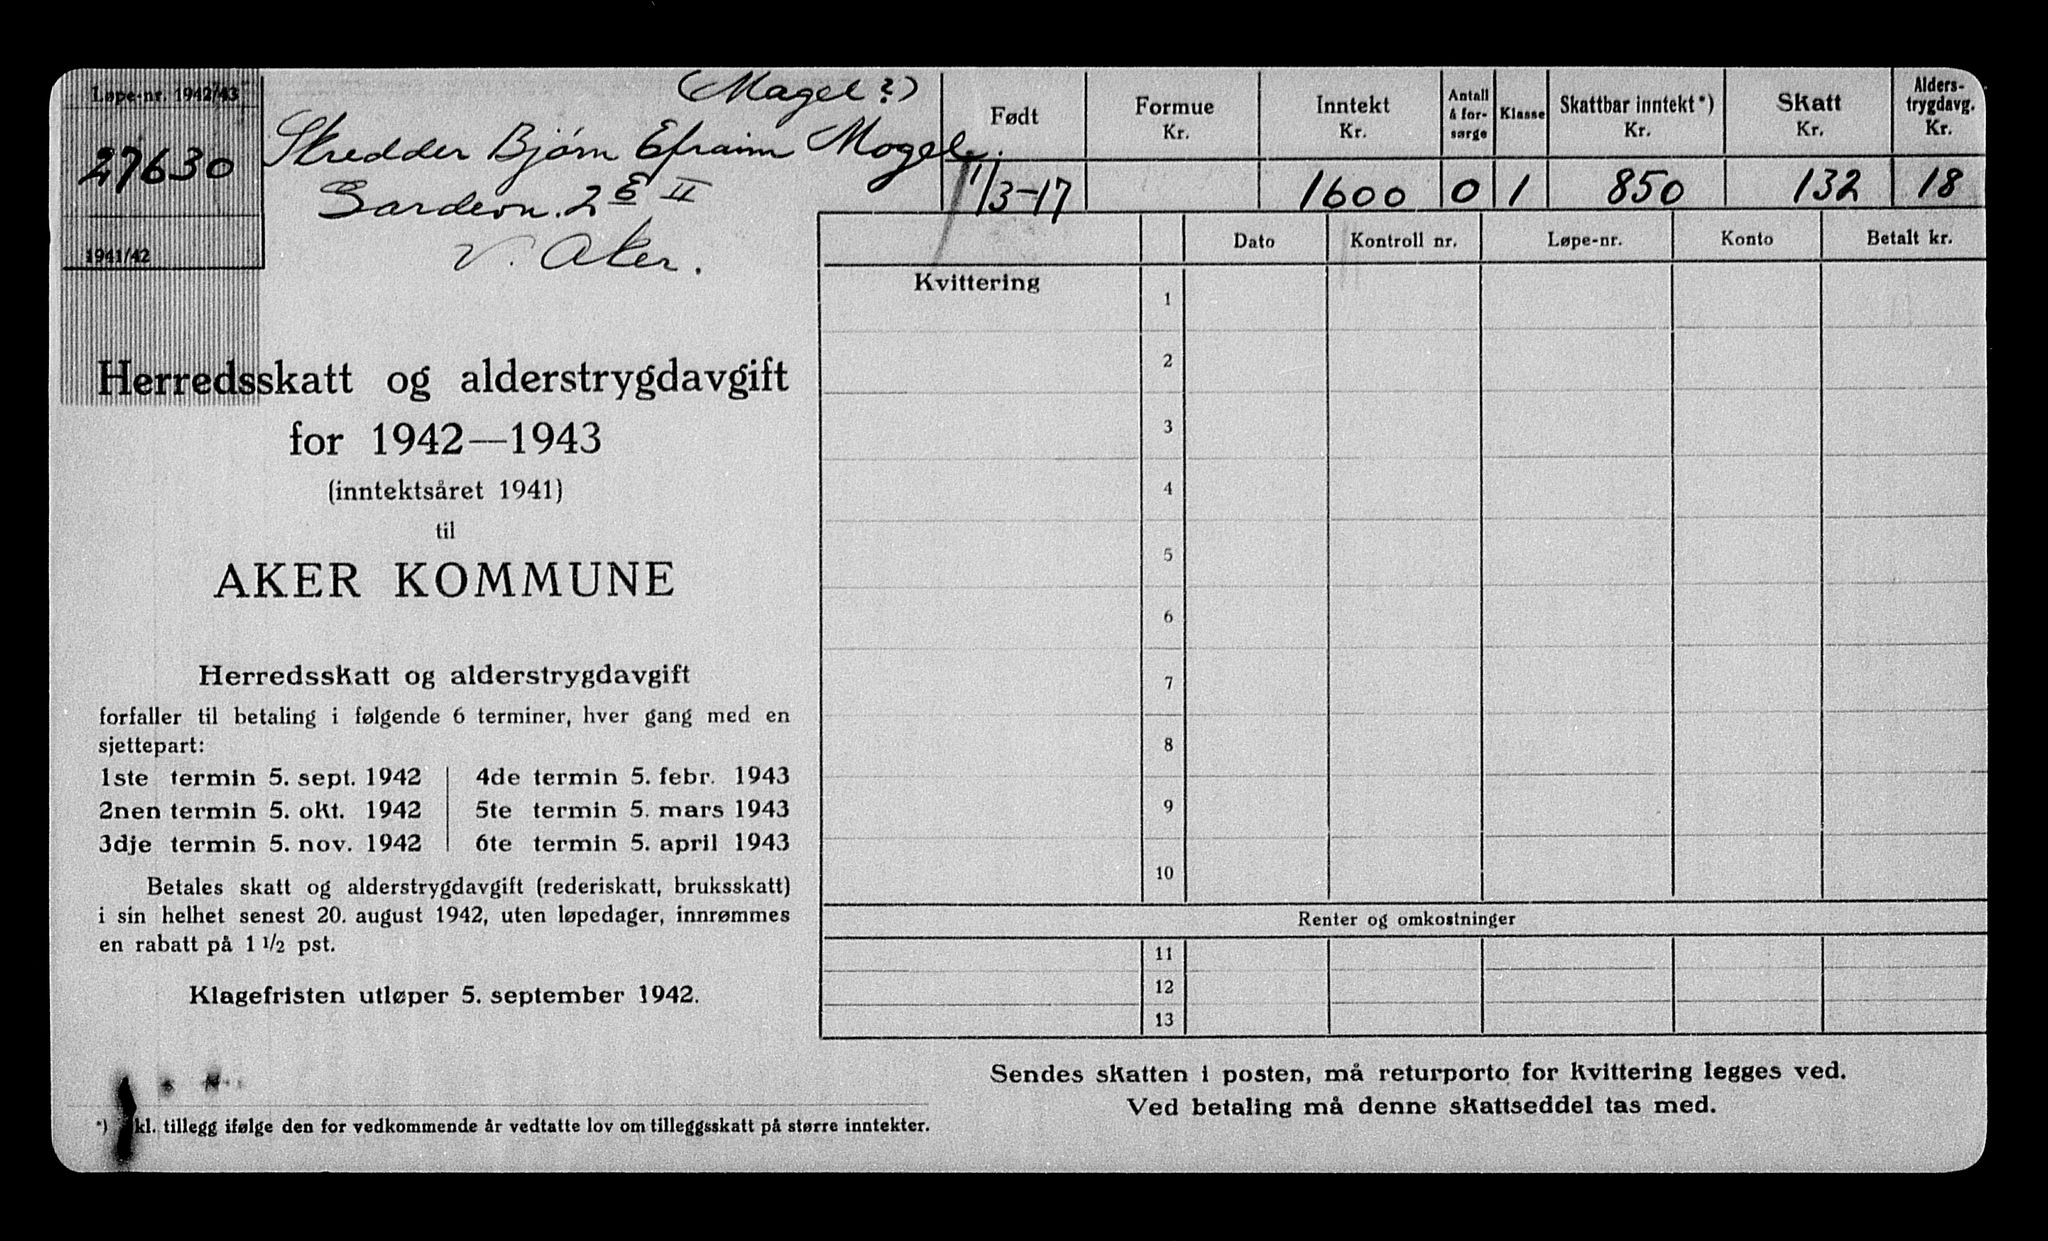 Løpe-nr. 1942/43
27630
1941/42
(Magel?)
Skredder Bjørn Efraim Mogel.
2 E II
V. Aker.
Født
Formue Kr.
Inntekt Kr.
Antall å forsørge
Klasse
Skattbar inntekt*) Kr.
Skatt Kr.
Alderstrygdavg. Kr.
1/3-17 1600 0 1 850 132 18
Dato Kontroll nr. Løpe-nr. Konto Betalt kr.
Kvittering
1
2
3
4
5
6
7
8
9
10
Renter og omkostninger
11
12
13
Herredsskatt og alderstrygdavgift
for 1942—1943
(inntektsåret 1941)
til
AKER KOMMUNE
Herredsskatt og alderstrygdavgift
forfaller til betaling i følgende 6 terminer, hver gang med en
sjettepart:
1ste termin 5. sept. 1942 | 4de termin 5. febr. 1943
2nen termin 5. okt. 1942 | 5te termin 5. mars 1943
3dje termin 5. nov. 1942 | 6te termin 5. april 1943
Betales skatt og alderstrygdavgift (rederiskatt, bruksskatt)
i sin helhet senest 20. august 1942, uten løpedager, innrømmes
en rabatt på 1 1/2 pst.
Klagefristen utløper 5. september 1942.
*) kl. tillegg ifølge den for vedkommende år vedtatte lov om tilleggsskatt på større inntekter.
Sendes skatten i posten, må returporto for kvittering legges ved.
Ved betaling må denne skattseddel tas med.